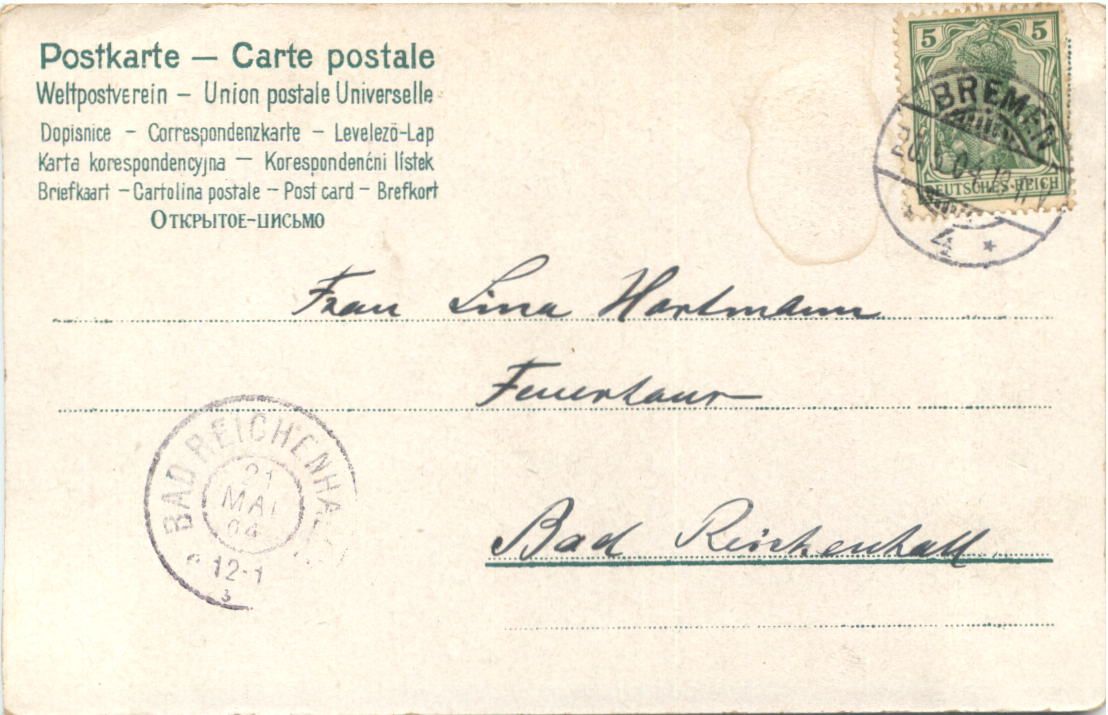 Postkarte — Carte postale
Weltpostverein – Union postale Universelle
Dopisnice – Correspondenzkarte – Levelező-Lap
Karta korespondencyjna — Korespondenćni lístek
Briefkaart – Cartolina postale – Post card – Brefkort
Открытое-письмо
5 5
DEUTSCHES REICH
BREMEN
4 *
Frau Lina Hartmann
BAD REICHENHALL
21
MAI
04
12-1
Bad Reichenhall